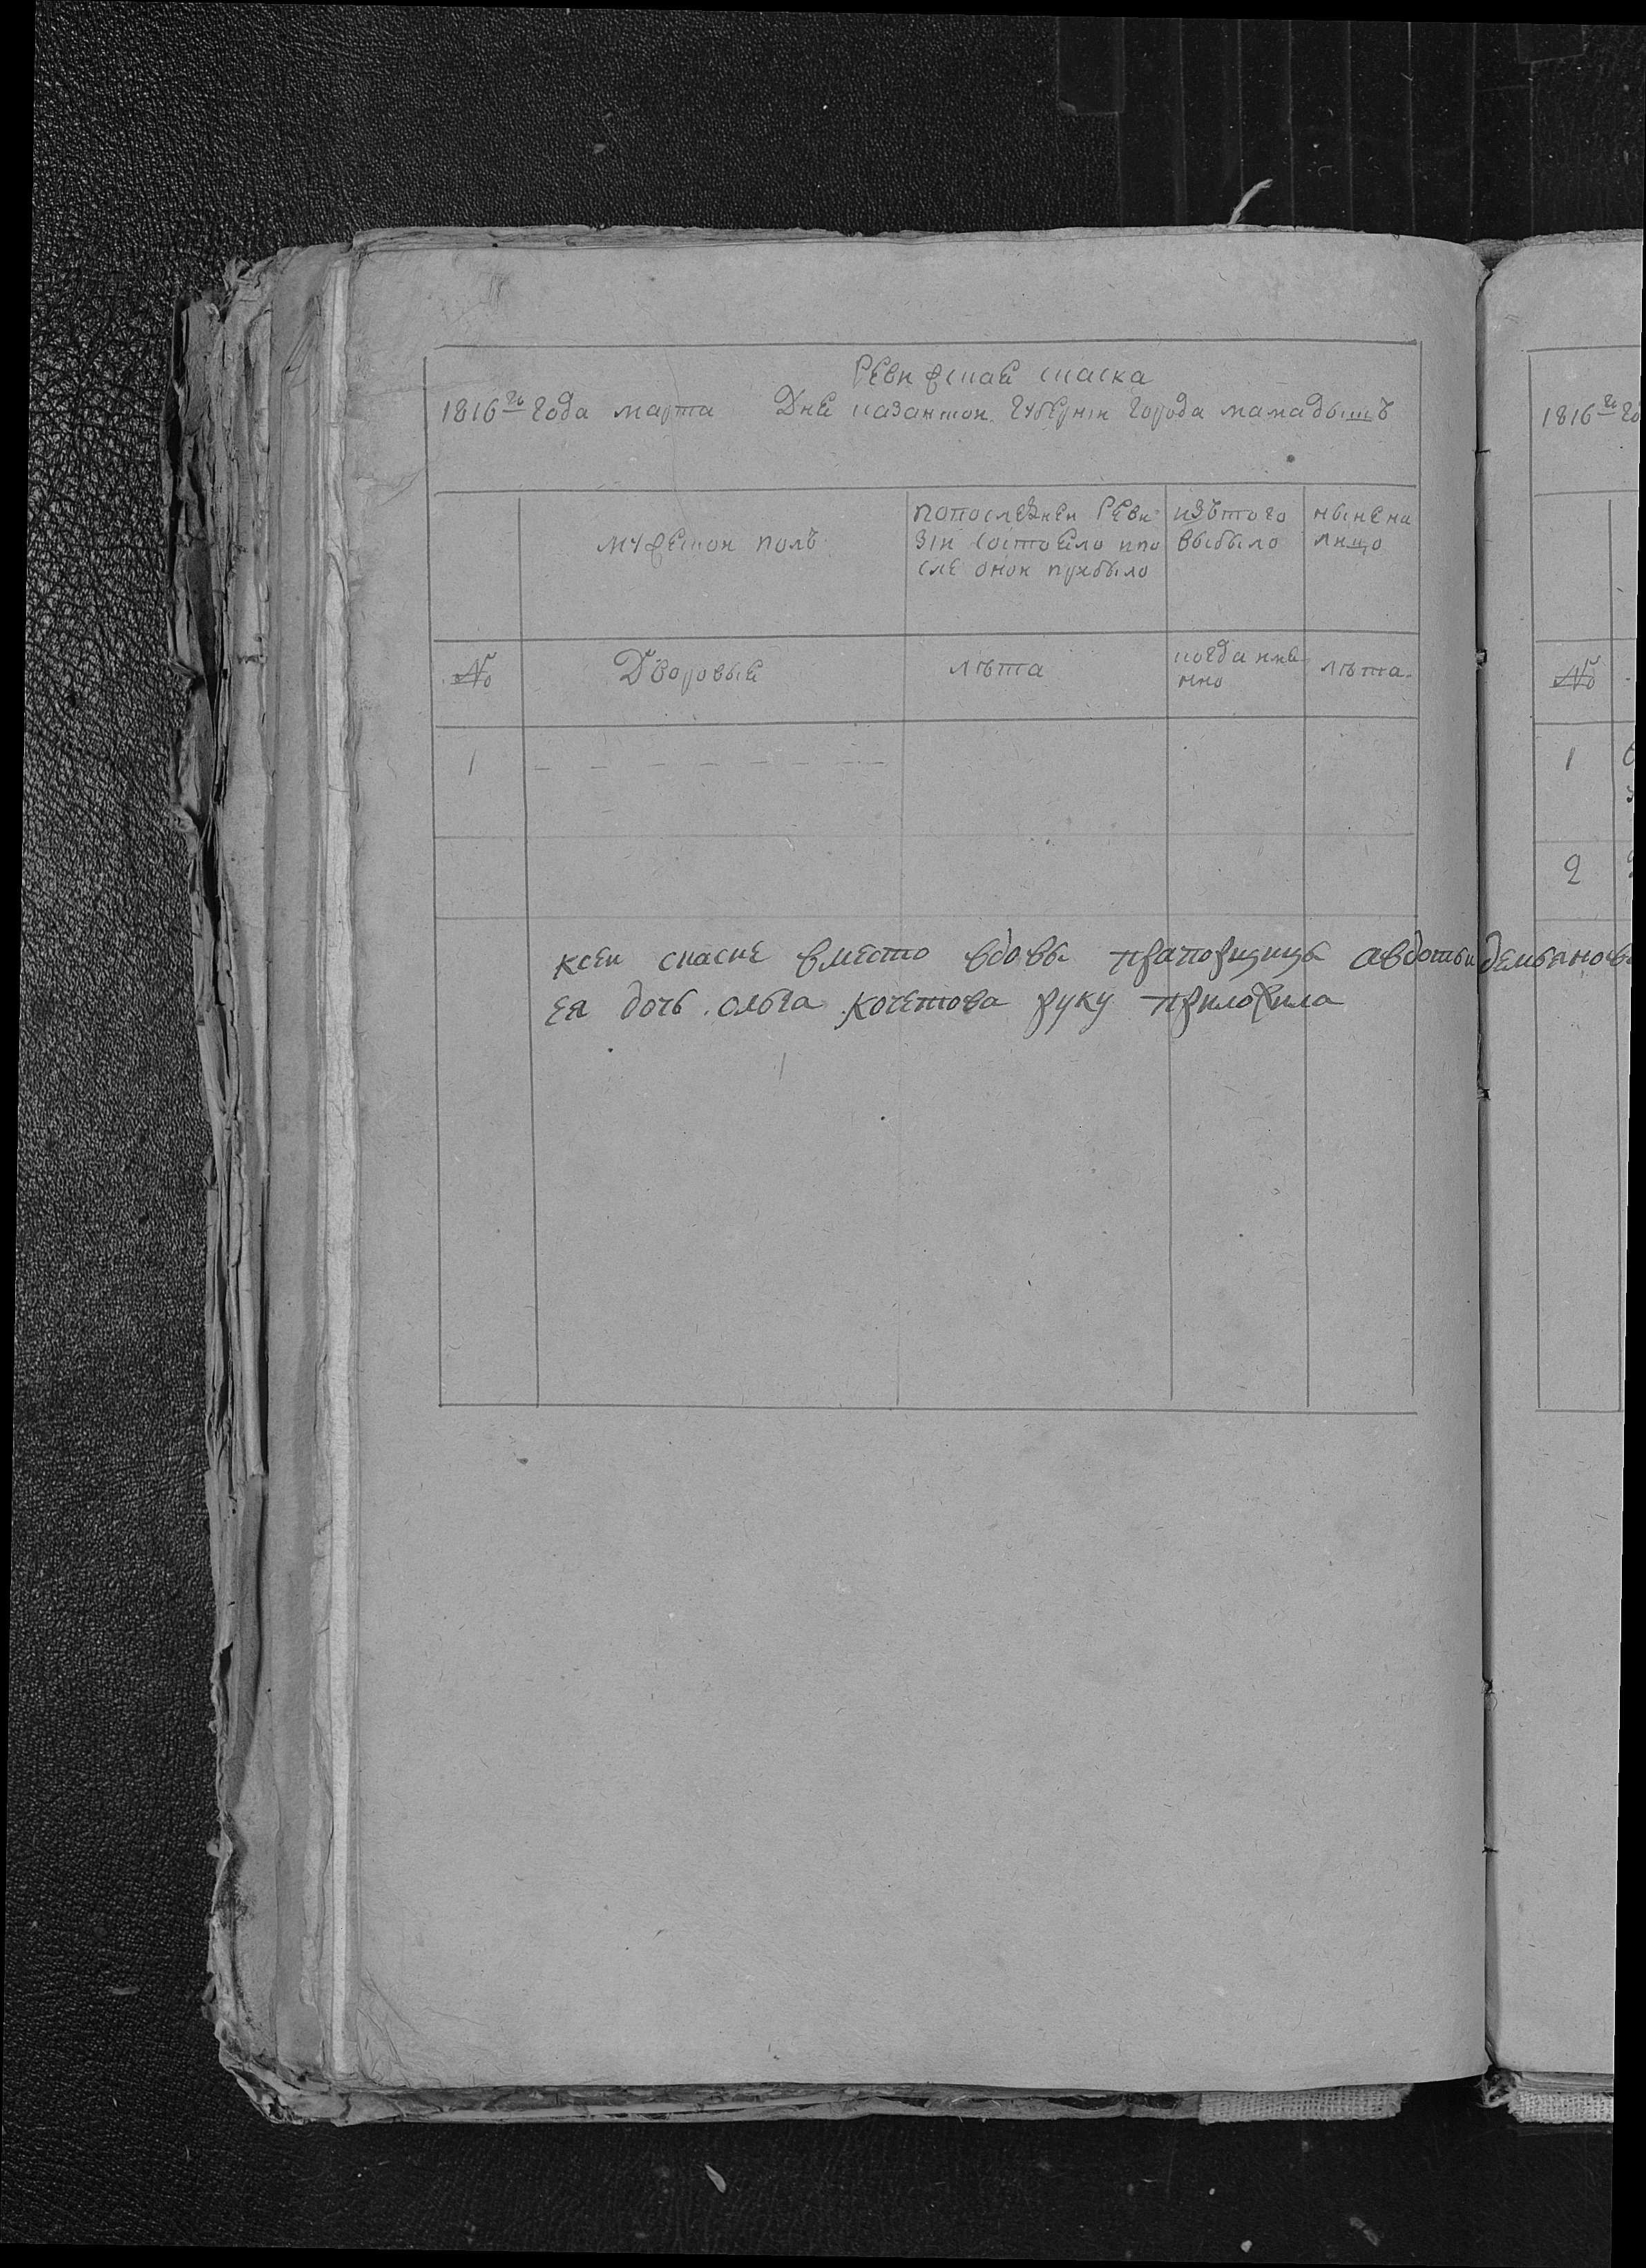 Ревижская скаска
1816го года марта Дня казанской губернiи города мамадышъ
мужескои полъ
попоследнеи Реви
зiи состояло ипо
сле онои прибыло
изътого
выбыло
ныне на
лицо
№
Дворовые
лѣта
когда име
нно
лѣта.
1 - - - - - - - -
ксеи скаске вместо вдовы прапорщицы авдотьи демьяновы
ея дочь ольга кочетова руку приложила
1816го го
№
1
2